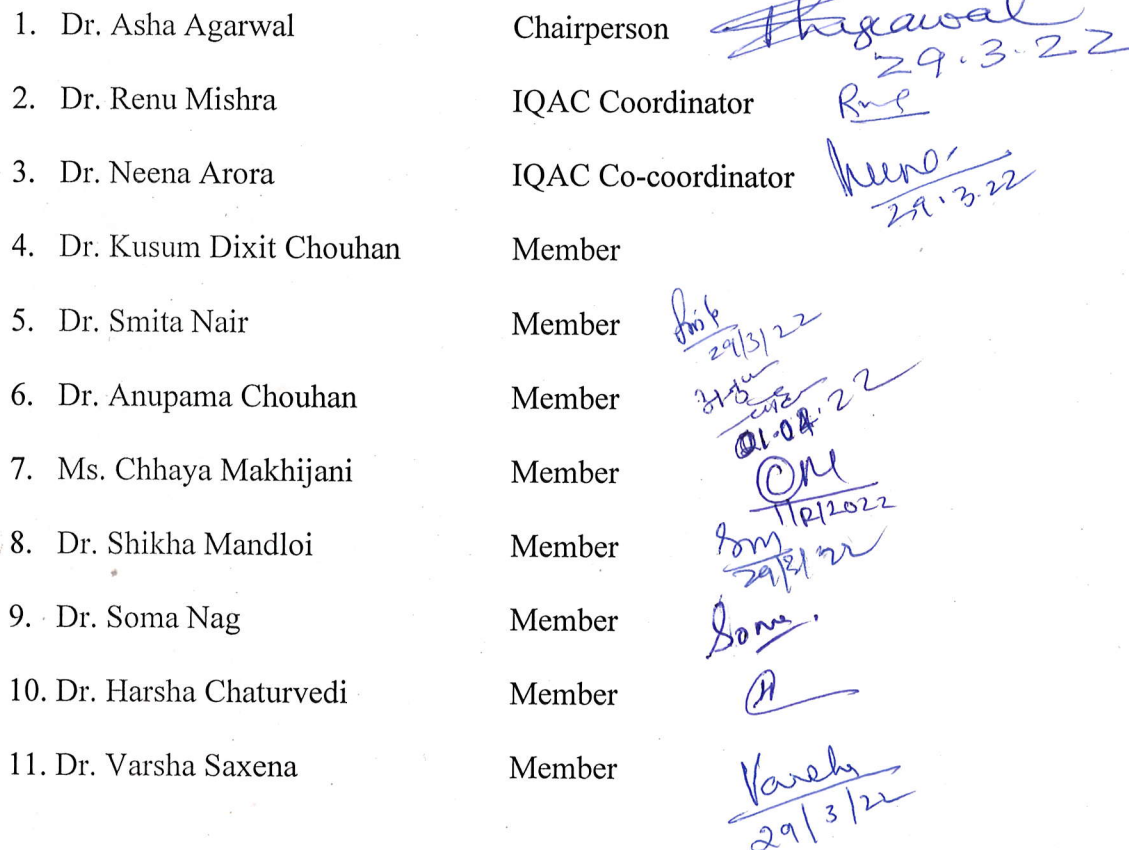 1. Dr. Asha Agarwal Chairperson Agarwal
29.3.22
2. Dr. Renu Mishra IQAC Coordinator
3. Dr. Neena Arora IQAC Co-coordinator Neena
29.3.22
4. Dr. Kusum Dixit Chouhan Member
5. Dr. Smita Nair Member
29/3/22
6. Dr. Anupama Chouhan Member
01.04.22
7. Ms. Chhaya Makhijani Member CM
8. Dr. Shikha Mandloi Member Sm
29/3/22
9. Dr. Soma Nag Member Soma.
10. Dr. Harsha Chaturvedi Member H
11. Dr. Varsha Saxena Member Varsha
29/3/22